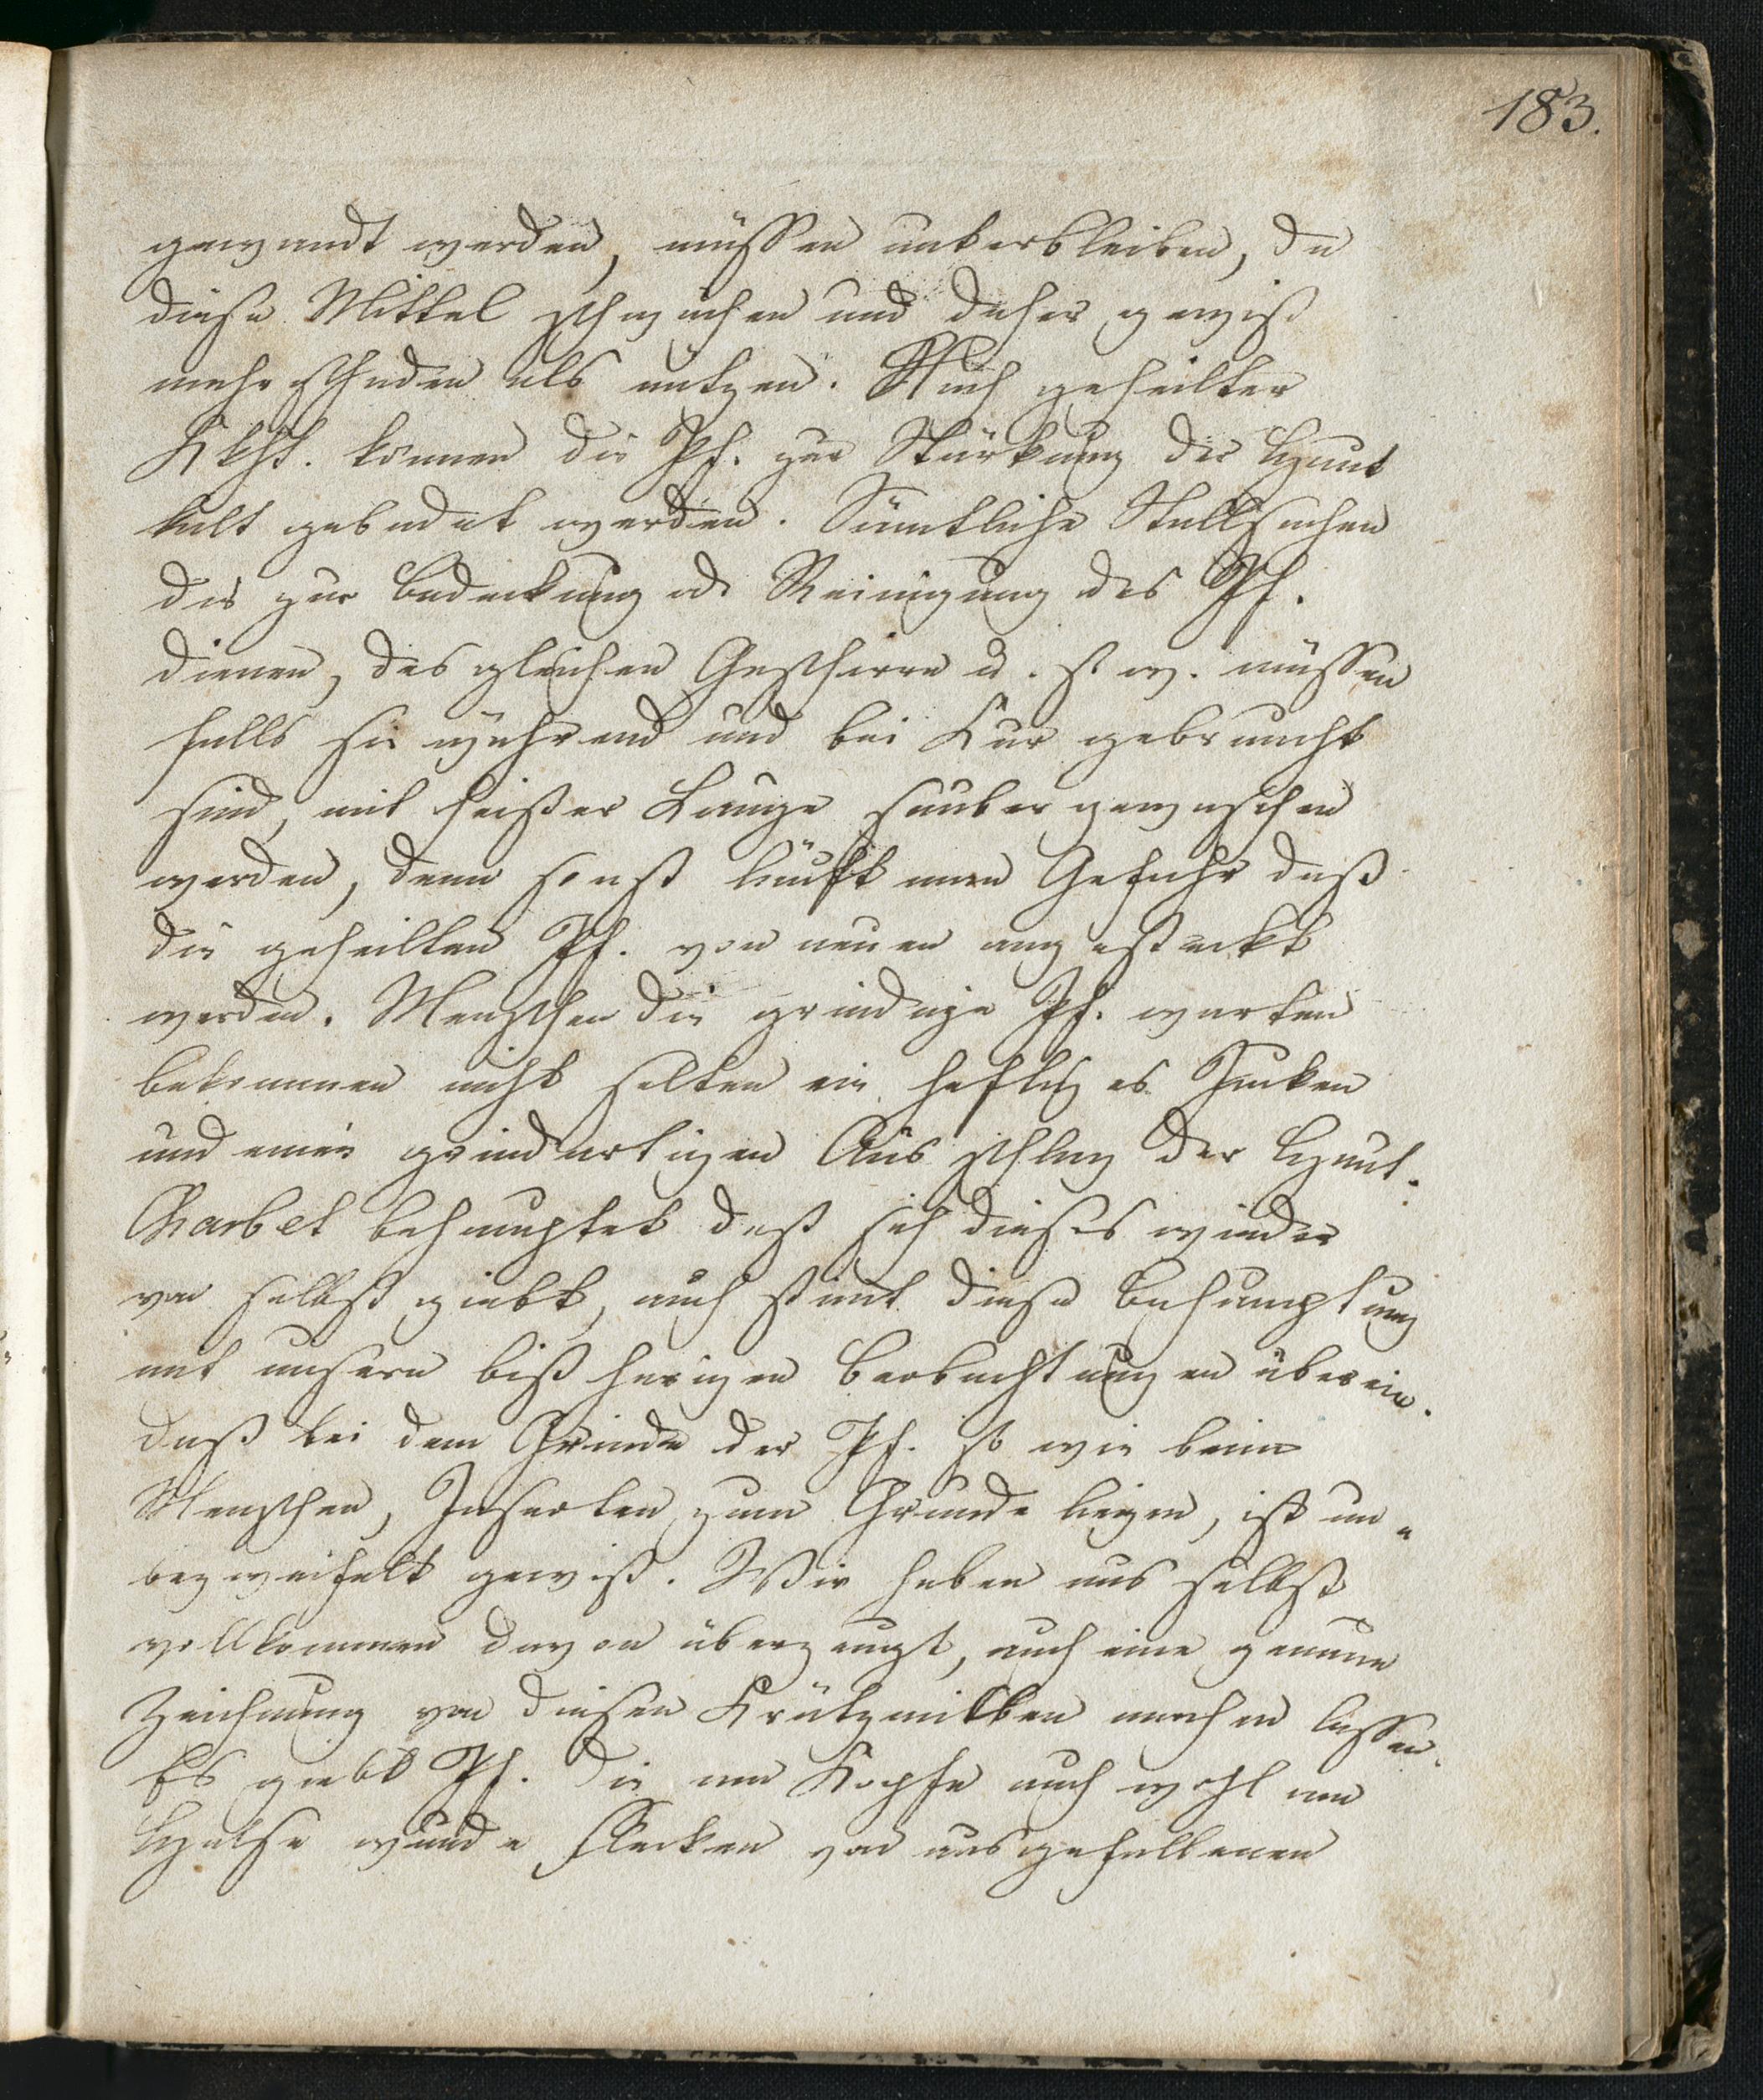 183.
gewandt werden, müssen unterbleiben, da
diese Mittel schwächen und daher gewiß
mehr schaden als nutzen. Nach geheilter
Kkht. können die Pf. zur Stärkung der Haut
kalt gebadet werden. Sämtliche Stallsachen
die zur Bedeckung od. Reinigung des Pf.
dienen, des gleichen Geschirre u. s. w. müssen
falls sie während und bei Kur gebraucht
sind, mit heißer Lauge sauber gewaschen
werden, denn sonst läuft man Gefahr daß
die geheilten Pf. von neuen angesteckt
werden. Menschen die grindige Pf. warten
bekommen nicht selten ein heftiges Jucken
und einen grindartigen Ausschlag der Haut.
Chabert behauptet daß sich dieses wieder
von selbst giebt, auch stimt diese Behauptung
mit unsern bißherigen Beobachtungen überein.
Daß bei dem Grinde der Pf. so wie beim
Menschen, Insecten zum Grunde liegen, ist un-
bezweifelt gewiß. Wir haben uns selbst
vollkommen davon überzeugt, auch eine genaue
Zeichnung von diesen Krätzmilben machen lassen.
Es giebt Pf. die am Kopfe auch wohl am
Halse wunde Flecken von ausgefallenen